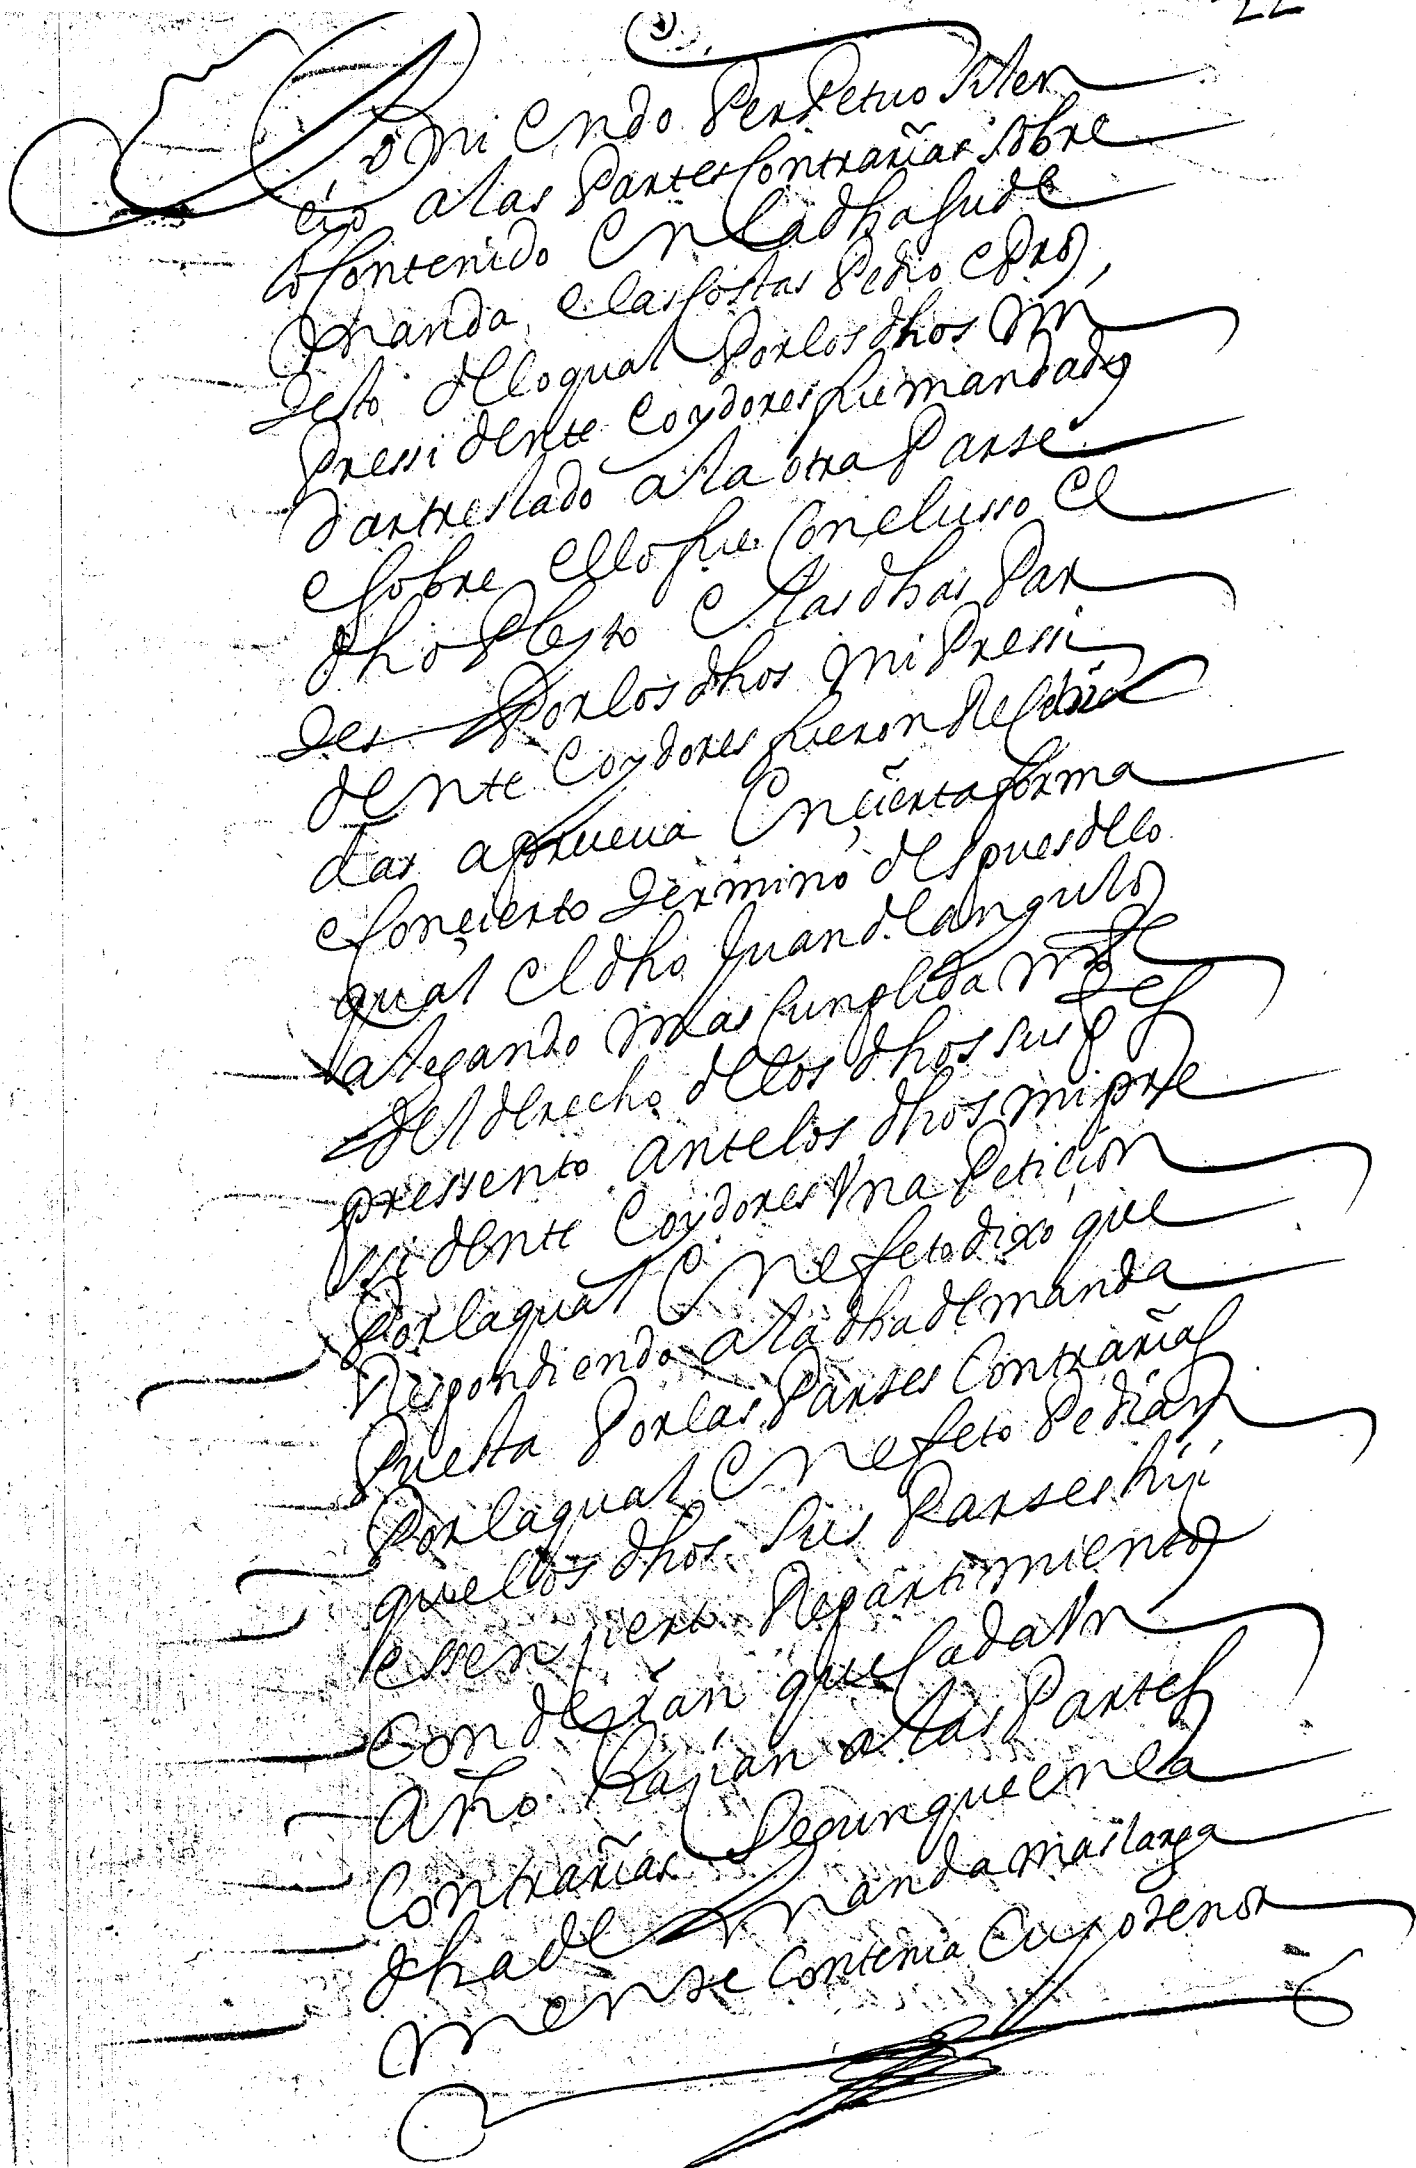 22
Poniendo Perpetuo silen
cio a las Partes Contrarias sobre
lo Contenido en la dha su de
manda, e las Costas Pedio e Pro
testo de lo qual Por los dhos mi
Pressidente e oydores fue mandado
dar treslado a la otra Parte
e sobre ello fue Conclusso el
dho Pleyto e las dhas Par
tes Por los dhos mi Pressi
dente e oydores fueron Resçebi
das a prueua en çierta forma
e Con çierto termino despues de lo
qual el dho Juan de angulo
alegando mas Cunplida mte
del derecho de los dhos sus ptes
pressento ante los dhos mi pre
ssidente e oydores Vna Petiçion
Por la qual en efeto dixo que
Respondiendo a la dha demanda
Puesta Por las Partes Contrarias
Por la qual en efeto Pedian
que los dhos sus Partes hiçi
essen çierto Repartimiento
con deçian que Cada Vn
año haçian a las Partes
Contrarias Segun que en la
dha de manda mas larga
mente Contenia Cuyo tenor